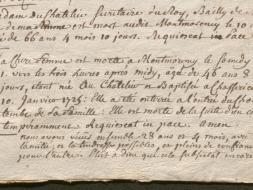 dam du Chatelus Secretaire du Roy, Bailly de
de ma femme est mort audit Montmorency le 10
de 66 ans 4 mois 10 jours. Requiescat in Pace
femme est morte à Montmorency le
vers les trois heures après midy, agée de 46 ans 8
jours, étant née au Chatelus Baptisée à
10. Janvier 1725. Elle a été enterrée à l'entrée du
tombe de la famille : Elle est morte de la suite d'un
tempérament Requiescat in pace. Amen.
nous avons vécus ensemble 28 ans et 4 mois, avec
la tendresse possibles, et pleins de confiance
pour l'autre. Plût à dieu que cela subsistat encore